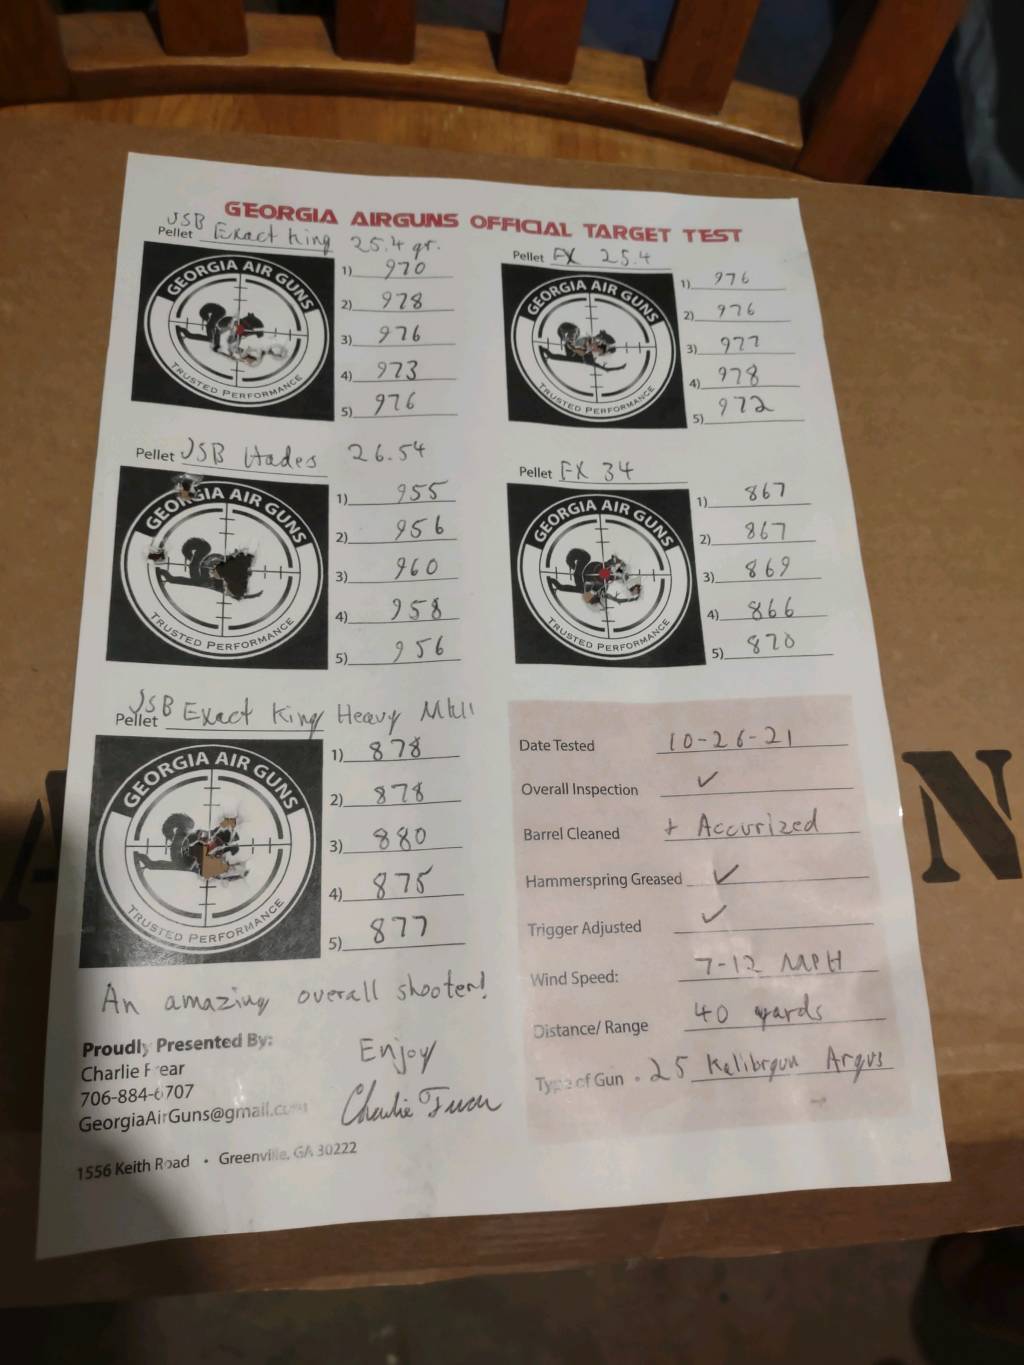 GEORGIA AIRGUNS OFFICIAL TARGET TEST
Pellet JSB Exact King 25.4 gr.
GEORGIA AIR GUNS
TRUSTED PERFORMANCE
1) 970
2) 978
3) 976
4) 973
5) 976
Pellet FX 25.4
GEORGIA AIR GUNS
TRUSTED PERFORMANCE
1) 976
2) 976
3) 977
4) 978
5) 972
Pellet JSB Hades 26.54
GEORGIA AIR GUNS
TRUSTED PERFORMANCE
1) 955
2) 956
3) 960
4) 958
5) 956
Pellet FX 34
GEORGIA AIR GUNS
TRUSTED PERFORMANCE
1) 867
2) 867
3) 869
4) 866
5) 870
Pellet JSB Exact King Heavy MkII
GEORGIA AIR GUNS
TRUSTED PERFORMANCE
1) 878
2) 878
3) 880
4) 875
5) 877
Date Tested 10-26-21
Overall Inspection ✓
Barrel Cleaned + Accurized
Hammerspring Greased ✓
Trigger Adjusted ✓
Wind Speed: 7-12 MPH
Distance/ Range 40 yards
Type of Gun .25 Kalibrgun Argus
An amazing overall shooter!
Enjoy
Charlie Frear
Proudly Presented By:
Charlie Frear
706-884-6707
GeorgiaAirGuns@gmail.com
1556 Keith Road • Greenville, GA 30222
N